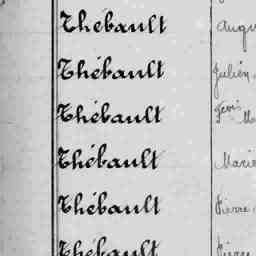 Thébault Augu
Thébault Julien
Thébault
Thébault Marie
Thébault Pierre
Thébault Pierre